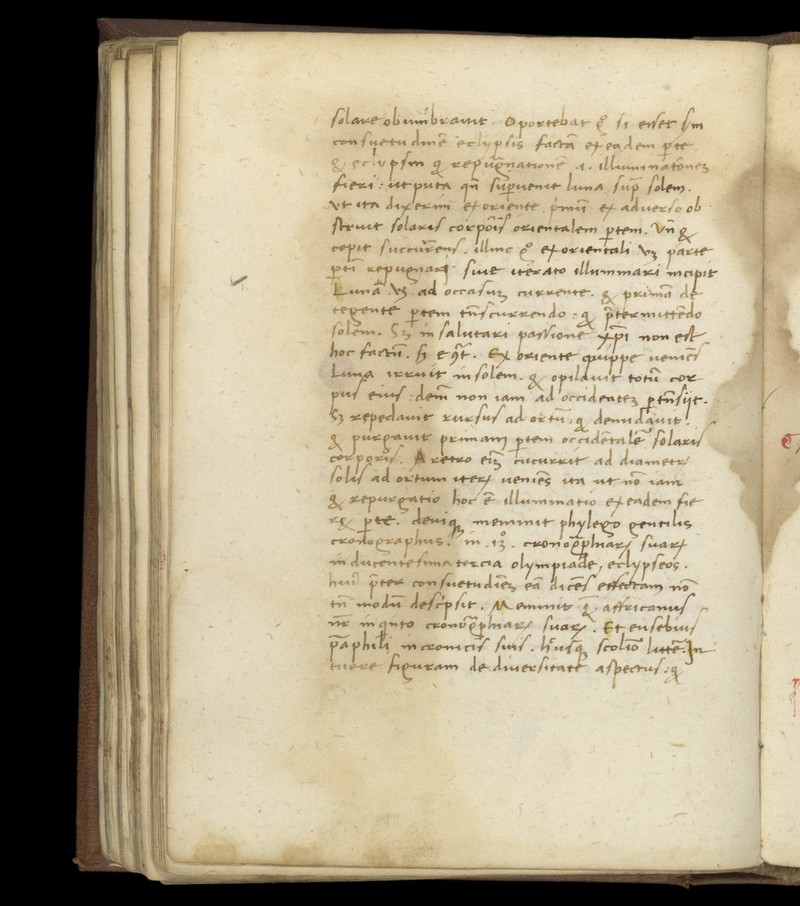 solare obumbravit. Oportebat q̄ si esset sm
consuetudinē eclypsis facta ex eadem p̄te
& eclypsim & repurgationē .i. illuminationeꝫ
fieri: ut puta qn̄ supvenit luna supra solem.
ut ita dixerim ex oriente primū ex adverso ob
struit solaris corporis orientalem p̄tem. Un̄ &
cepit succurrens. illinc ex orientali vꝫ parte
sive iterato illuminari incipit
Lunā vꝫ ad occasum currente. & primā de
tegente p̄tem trnscurrendo: & p̄termittēdo
solem. Sꝫ in salutari passione xp̄i non est
hoc factū. sꝫ Ex oriente quippe veniēs
Luna irruit in solem. & opilavit totū cor
pus eius: dein̄ non iam ad occidenteꝫ ptn̄siit.
Sꝫ repedavit rursus ad ortū: & denudavit.
& purgavit primam p̄tem occidentalē solaris
corporis. A retro eiꝫ cucurrit ad diametrꝝ
solis ad ortum iterꝝ veniēs ita ut nō iam
& repurgatio hoc ē illuminatio ex eadem fie
ret p̄te. deniqꝫ meminit phylego gentilis
cronographus. in .13°. cronographiaꝝ suaꝝ
in ducentesima tercia olympiade, eclypseos.
huiꝰ p̄ter consuetudinē eā dicēs effectam nō
tn̄ modū descripsit. Meminit affricanus
nr̄ in quinto cronographiaꝝ suaꝝ. Et eusebius
pāphili in cronicis suis. scolion In
tuere figuram de diversitate aspectus: &